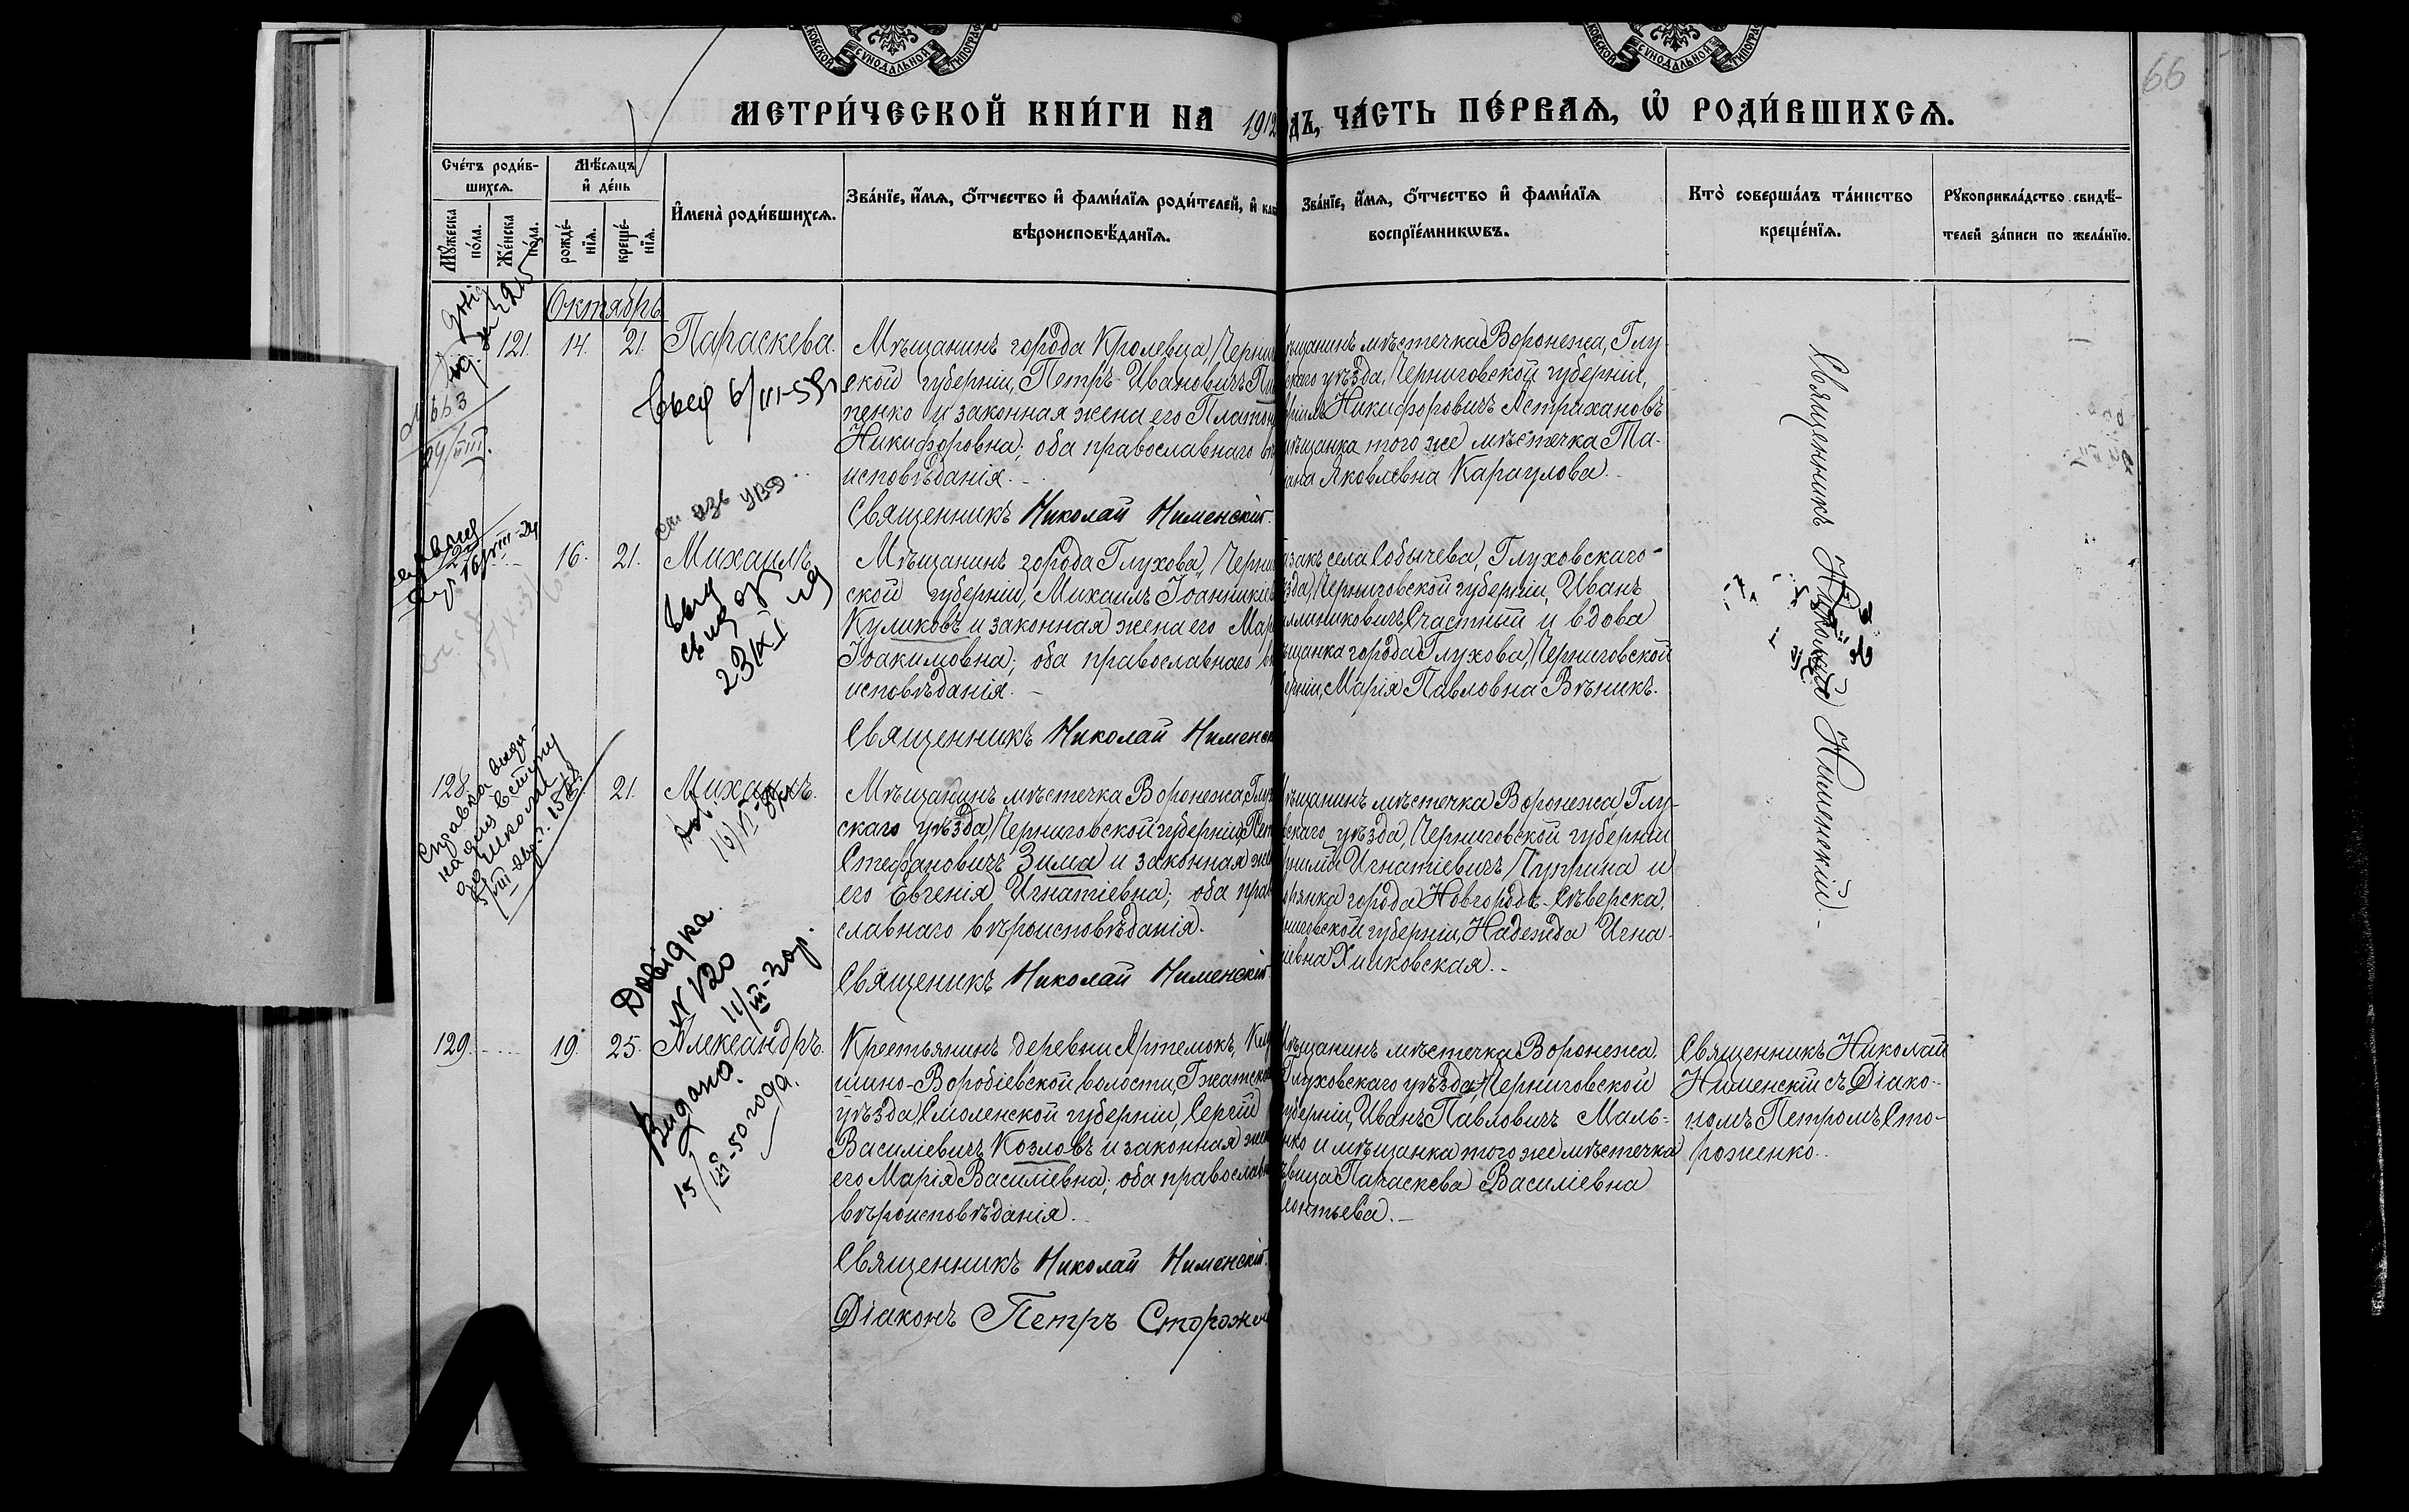 66
МЕТРИ́ЧЕСКОЙ КНИ́ГИ НА 1912
ДЪ, ЧА́СТЬ ПЕ́РВАѦ, Ѡ҆ РОДИ́ВШИХСѦ.
Сче́тъ роди́в-
шихсѧ.
Мꙋ́жеска
по́ла.
Же́нска
по́ла.
Мѣ́сѧцъ
и҆ де́нь
рожде́-
нїѧ.
креще́-
нїѧ.
И҆мена̀ роди́вшихсѧ.
Зва́нїе, и҆́мѧ, ѻ҆́тчество и҆ фами́лїѧ роди́телей, и҆ как
вѣроисповѣ́данїѧ.
Зва́нїе, и҆́мѧ, ѻ҆́тчество и҆ фами́лїѧ
воспрїе́мникѡвъ.
Кто̀ соверша́лъ та́инство
креще́нїѧ.
Рꙋкоприкла́дство свидѣ́-
телей за́писи по жела́нїю.
Октябрь
121. 14. 21. Параскева.
Мѣщанинъ города Кролевца, Черни
ской губерніи, Петръ Ивановичъ
пенко и законная жена его Платон
Никифоровна; оба православнаго в
исповѣданія.
Священникъ Николай Нименскій.
ѣщанинъ мѣстечка Воронежа, Глу-
скаго уѣзда, Черниговской губерніи,
Никифоровичъ Астрахановъ
мѣщанка того же мѣстечка Та-
ана Яковлевна Караулова.
Священникъ Николай Нименскій.
6/III-55
24/VIII.
16. 21. Михаилъ.
Мѣщанинъ города Глухова, Черни
ской губерніи, Михаилъ Іоанникіев
Куликовъ и законная жена его Мар
Іоакимовна; оба православнаго в
исповѣданія.
Священникъ Николай Нименск
закъ села Собычева, Глуховскаго
зда, Черниговской губерніи, Иванъ
Счастный и вдова
щанка города Глухова, Черниговской
ерніи, Марія Павловна Вѣникъ.
23/XI
128. 21. Михаилъ.
Мѣщанинъ мѣстечка Воронежа, Глух
скаго уѣзда, Черниговской губерніи, Пет
Стефановичъ Зима и законная же
его Евгенія Игнатіевна; оба прав
славнаго вѣроисповѣданія.
Священикъ Николай Нименскій
ѣщанинъ мѣстечка Воронежа Глу-
вскаго уѣзда, Черниговской губерніи
Игнатіевичъ Чуприна и
города Новгородъ-Сѣверска,
ниговской губерніи, Надежда Игна-
іевна
Справка
школы
Довідка
N 120
11/III-
129. 19. 25. Александръ.
Крестьянинъ деревни Артемокъ,
шино-Воробіевской волости, Гжатско
уѣзда, Смоленской губерніи, Сергій
Василіевичъ Козловъ и законная жен
его Марія Василіевна; оба православн
вѣроисповѣданія.
Священникъ Николай Нименскій.
Діаконъ Петръ Сторожен
ѣщанинъ мѣстечка Воронежа,
Глуховскаго уѣзда, Черниговской
уберніи, Иванъ Павловичъ Маль-
нко и мѣщанка того же мѣстечка
вица Параскева Василіевна
еонтьева.
Священникъ Николай
Нименскій съ Діако-
номъ Петромъ Сто-
роженко.
Видано.
15/III-50 года.